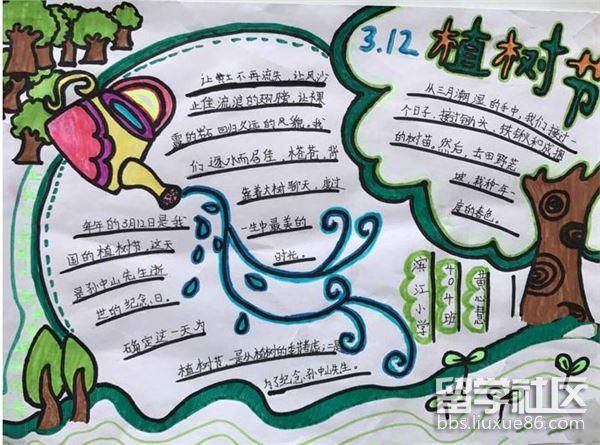 3.12 植树节
让黄土不再流失,让风沙
止住流浪的翅膀,让裸
露的岩石回归久远的风貌,我
们逐水而居住,搭着背
靠着大树聊天,度过
一生中最美的
时光。
从三月潮湿的手中,我们接过一
个日子,接过锄头、铁锹和茂拥
的树苗,然后,去田野荒
坡,栽种一年一
度的春色。
每年的3月12日是我
国的植树节,这天
是孙中山先生逝
世的纪念日。
确定这一天为
植树节,是从植树的季节考虑;二是
为了纪念孙中山先生。
滨江小学
404班
黄心慧
留学社区
bbs.liuxue86.com